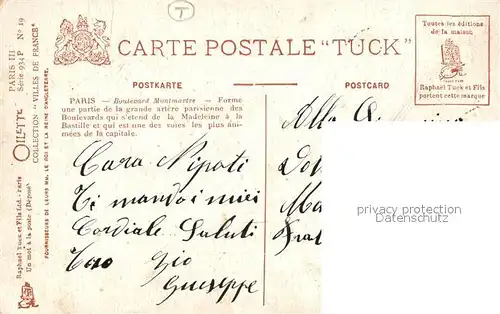 PARIS III
Série 934 P Nº 19
OILETTE
COLLECTION "VILLES DE FRANCE"
FOURNISSEURS DE LEURS MM. LE ROI ET LA REINE D'ANGLETERRE.
Raphael Tuck et Fils Ltd.-Paris
Un mot à la poste (Déposé)
T
CARTE POSTALE "TUCK"
Toutes les éditions
de la maison
Raphael Tuck et Fils
portent cette marque
POSTKARTE
POSTCARD
PARIS — Boulevard Montmartre — Forme
une partie de la grande artère parisienne des
Boulevards qui s'étend de la Madeleine à la
Bastille et qui est une des voies les plus ani-
mées de la capitale.
Cara Nipoti
Ti mando i miei
Cordiale Saluti
Tuo Zio
Guseppe
Alla
privacy protection
Datenschutz